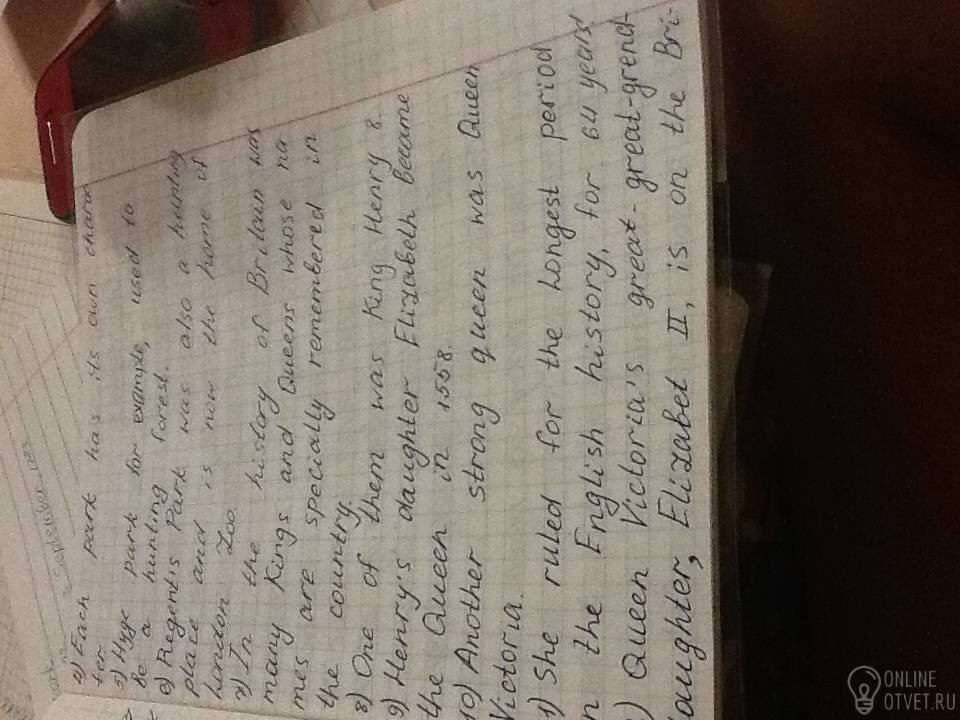 4) Each park has its own charac
ter.
5) Hyge park for example, used to
be a hunting forest.
6) Regent's Park was also a hunting
place and is now the home of
London Zoo.
7) In the history of Britain was
many Kings and Queens whose na
mes are specially remembered in
the country.
8) One of them was King Henry 8.
9) Henry's daughter Elizabeth became
the Queen in 1558.
10) Another strong queen was Queen
Victoria.
1) She ruled for the longest period
n the English history, for 64 years
) Queen Victoria's great-great-grend-
aughter, Elizabet II, is on the Bri-
ONLINE
OTVET.RU